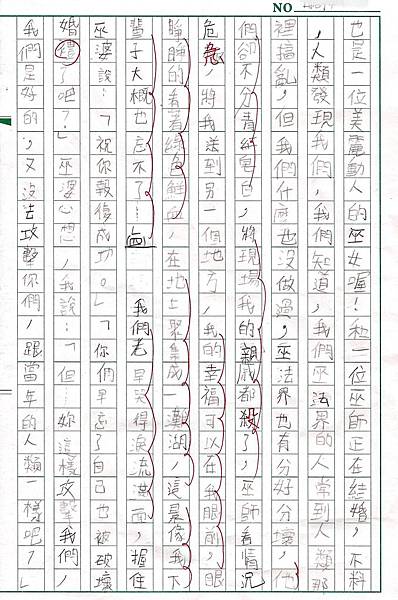 NO
也是一位美麗動人的巫女喔!和一位巫師正在結婚,不料
,人類發現我們,我們知道,我們巫法界的人常到人類那
裡搞亂,但我們什麼也沒做過,巫法界也有分好分壞,他
們卻不分青紅皂白,將現場我的親戚都殺了,巫師看情況
危急,將我送到另一個地方,我的幸福可以在我眼前,眼
睜睜的看著綠色鮮血,在地上聚集成一灘湖,這景像我下
輩子大概也忘不了…血 我們老早哭得淚流滿面,握住
巫婆說:「祝你報復成功。」「你們早忘了自己也被破壞
婚禮了吧?」巫婆心想,我說:「但…妳這樣攻擊我們,
我們是好的,又沒法攻擊你們,跟當年的人類一樣吧?」